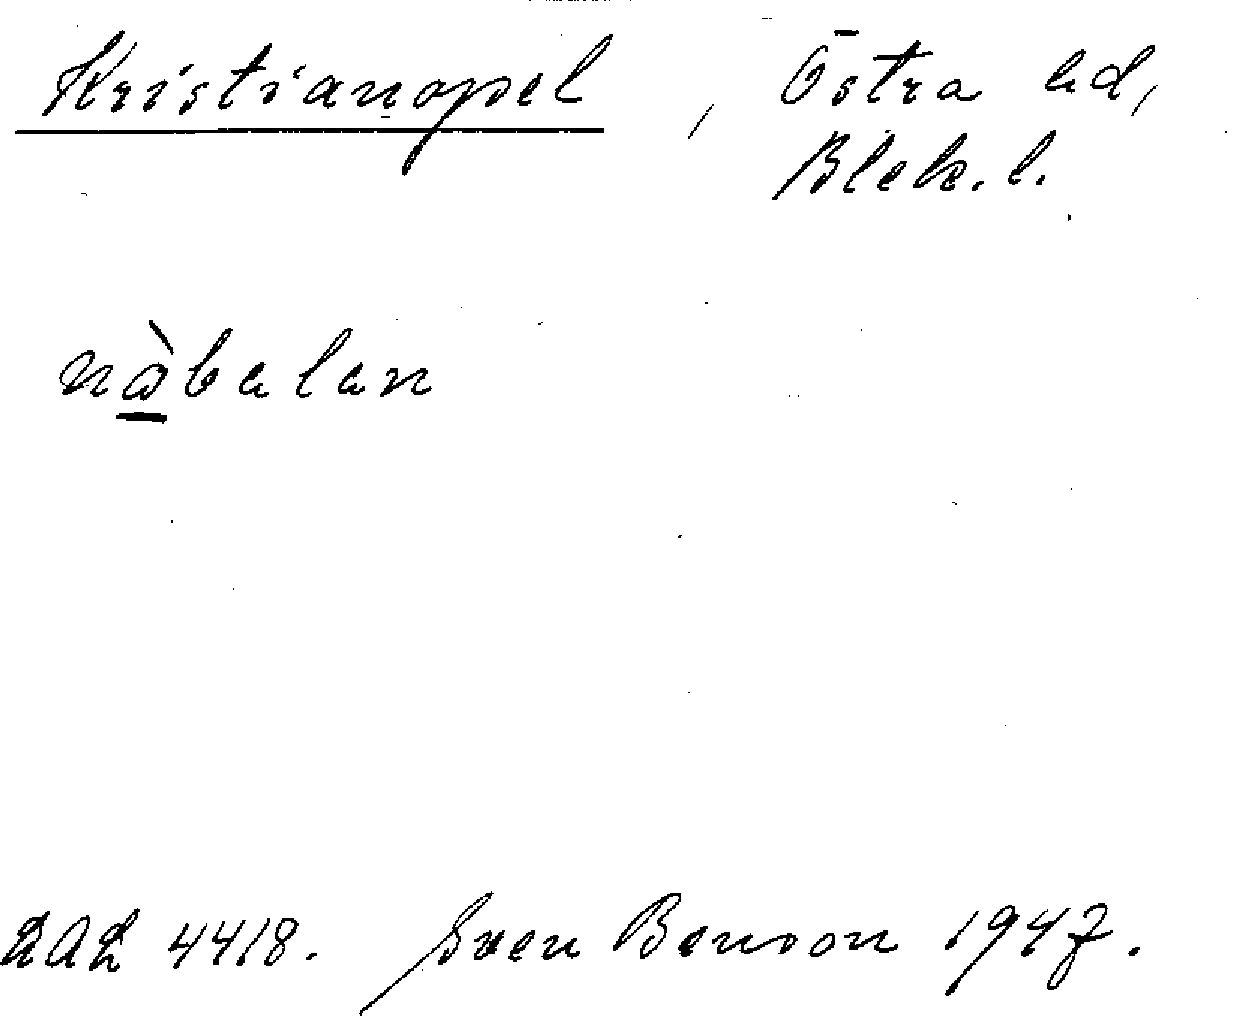 Kristianopel , Östra hd,
Blek. l.
nàbalan
LAL 4418. Sven Benson 1947.